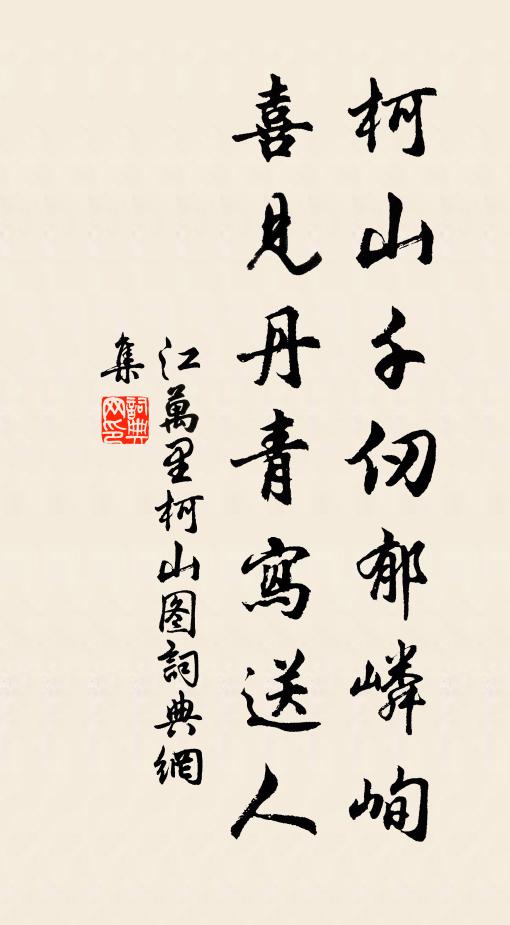 柯山千仞郁嶙峋
喜見丹青寫送人
江萬里柯山图詞典網
集
詞典
网印